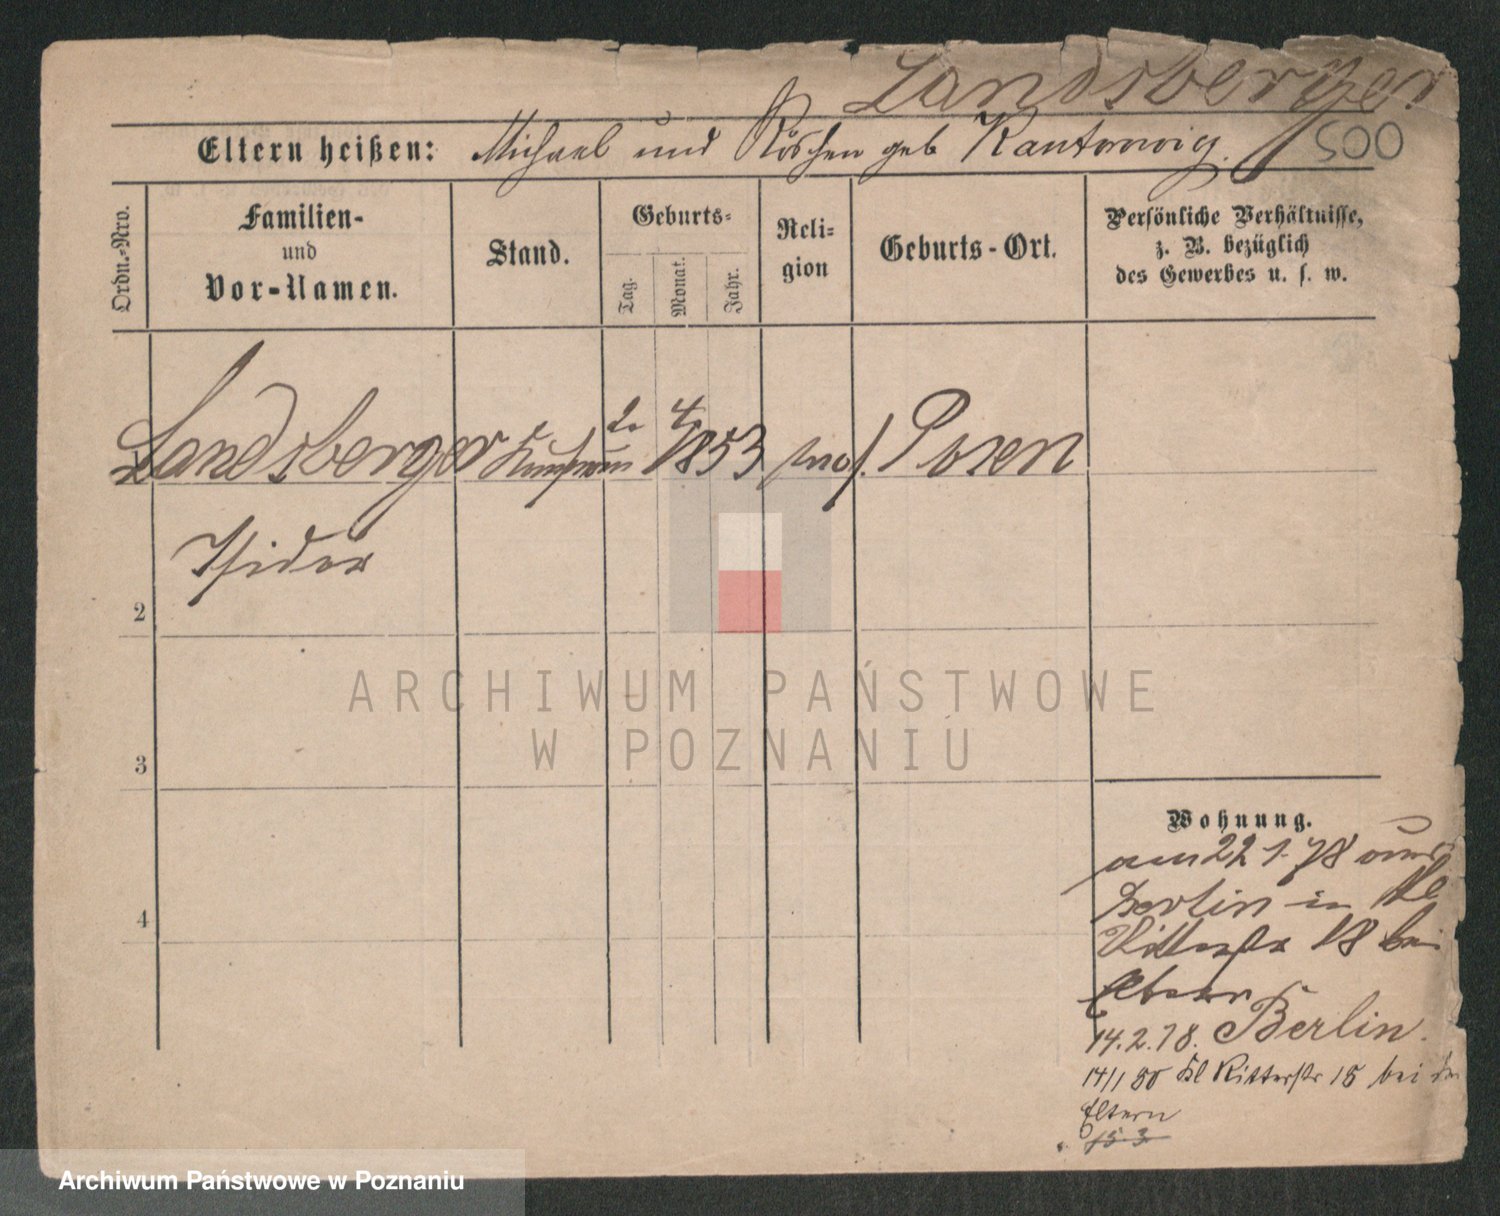 Landsberger
500
Eltern heißen: Michael und Röschen geb Kantorowicz.
Ordn.-Nro.
Familien-
und
Vor-Namen.
Stand.
Geburts-
Tag.
Monat.
Jahr.
Reli-
gion
Geburts-Ort.
Persönliche Verhältnisse,
z. B. bezüglich
des Gewerbes u. s. w.
Landsberger Kaufmann 2. 4 1853 mos. Posen
Isidor
2
3
4
ARCHIWUM PAŃSTWOWE
W POZNANIU
Wohnung.
am 22 1. 78 von
Berlin in Kl
Ritterstr 18 bei
Eltern
14.2.78. Berlin.
14/1 80 Kl Ritterstr 15 bei den
Eltern
15 3
Archiwum Państwowe w Poznaniu